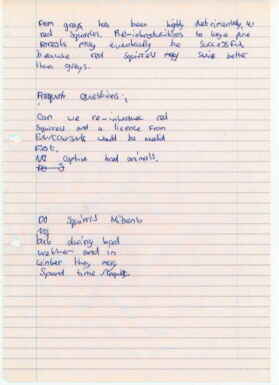 From greys has been highly detrimental, to
red squirrels. Re-introductions to large pine
forests may eventually be successful
because red squirrels may survive better
than greys.
Frequent Questions,
Can we re-introduce red
squirrels and a licence from
would be needed
First.
NO captive bred animals.
DO Squirrels Hibernate
No
but during bad
weather and in
winter they may
Spend time